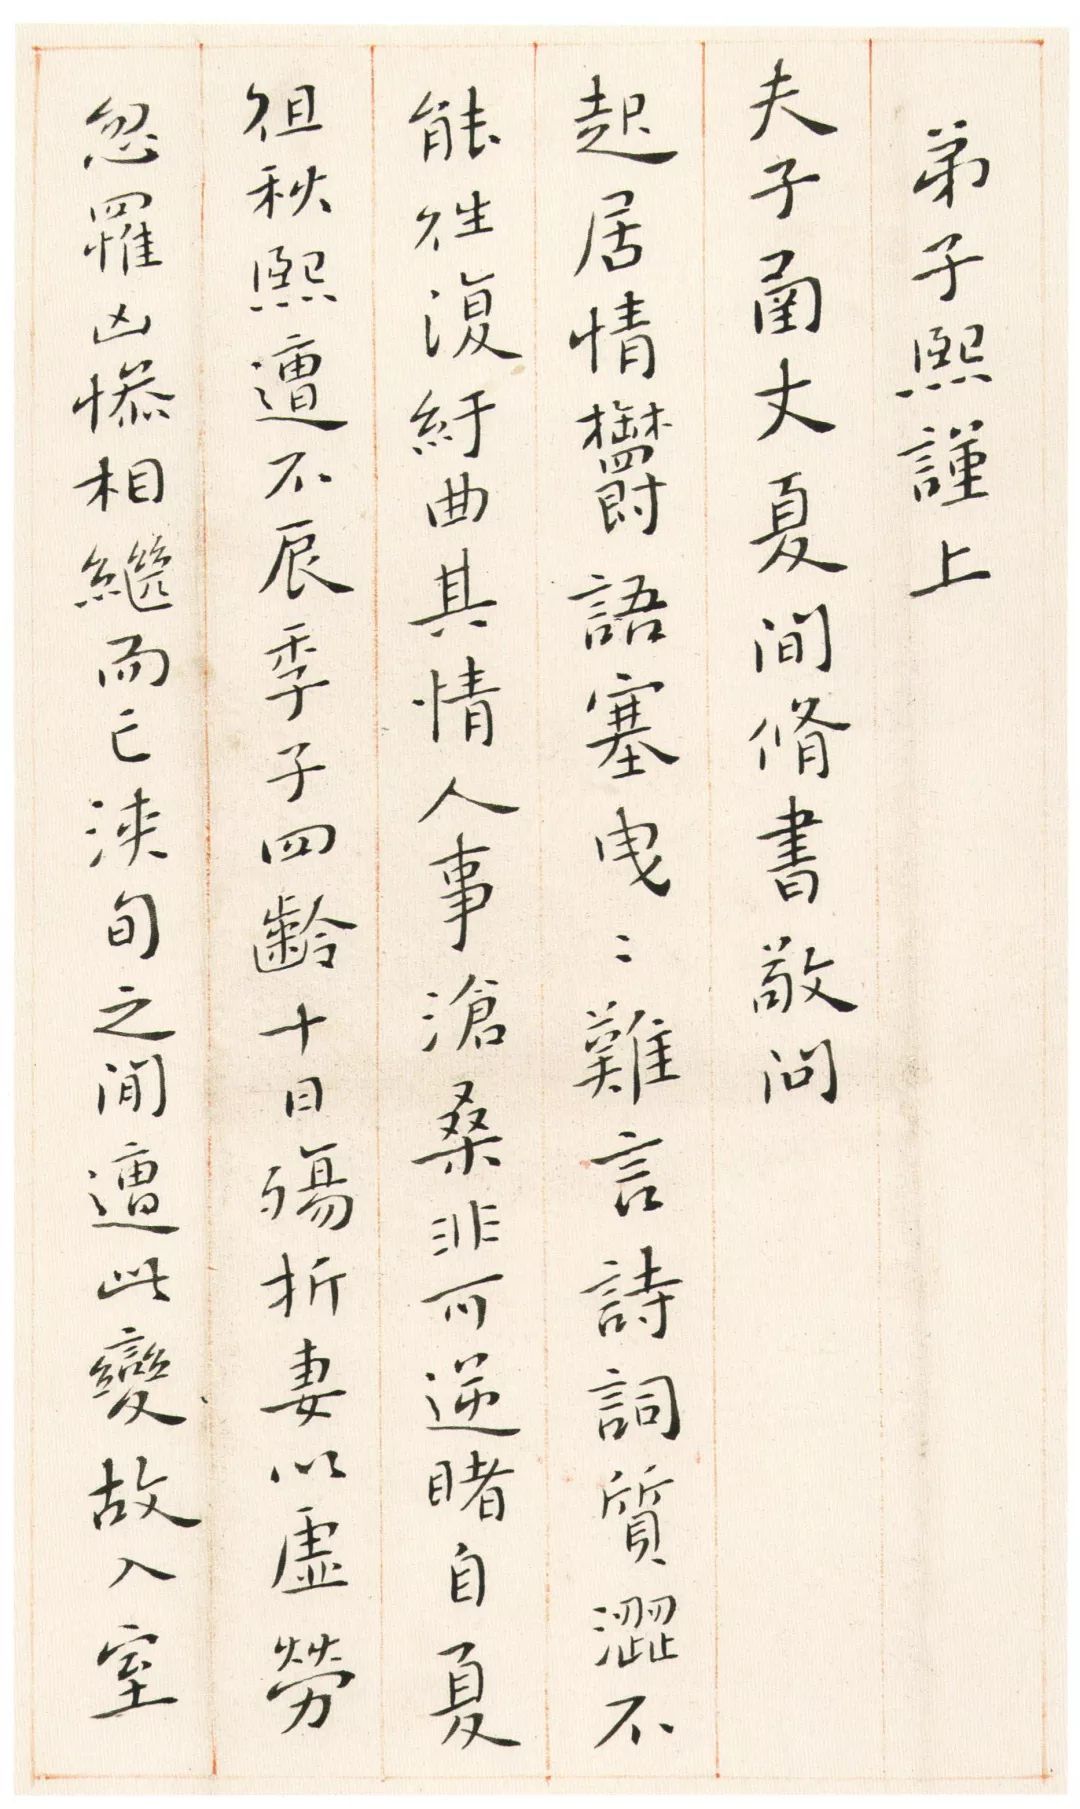 弟子熙謹上
夫子圅丈夏间脩書敬问
起居情欝語塞曳〻難言詩詞質澀不
能往復紆曲其情人事滄桑非可逆睹自夏
徂秋熙遭不辰季子四齡十日殤折妻以虛勞
忽罹凶惨相繼而亡浹旬之间遭此變故入室